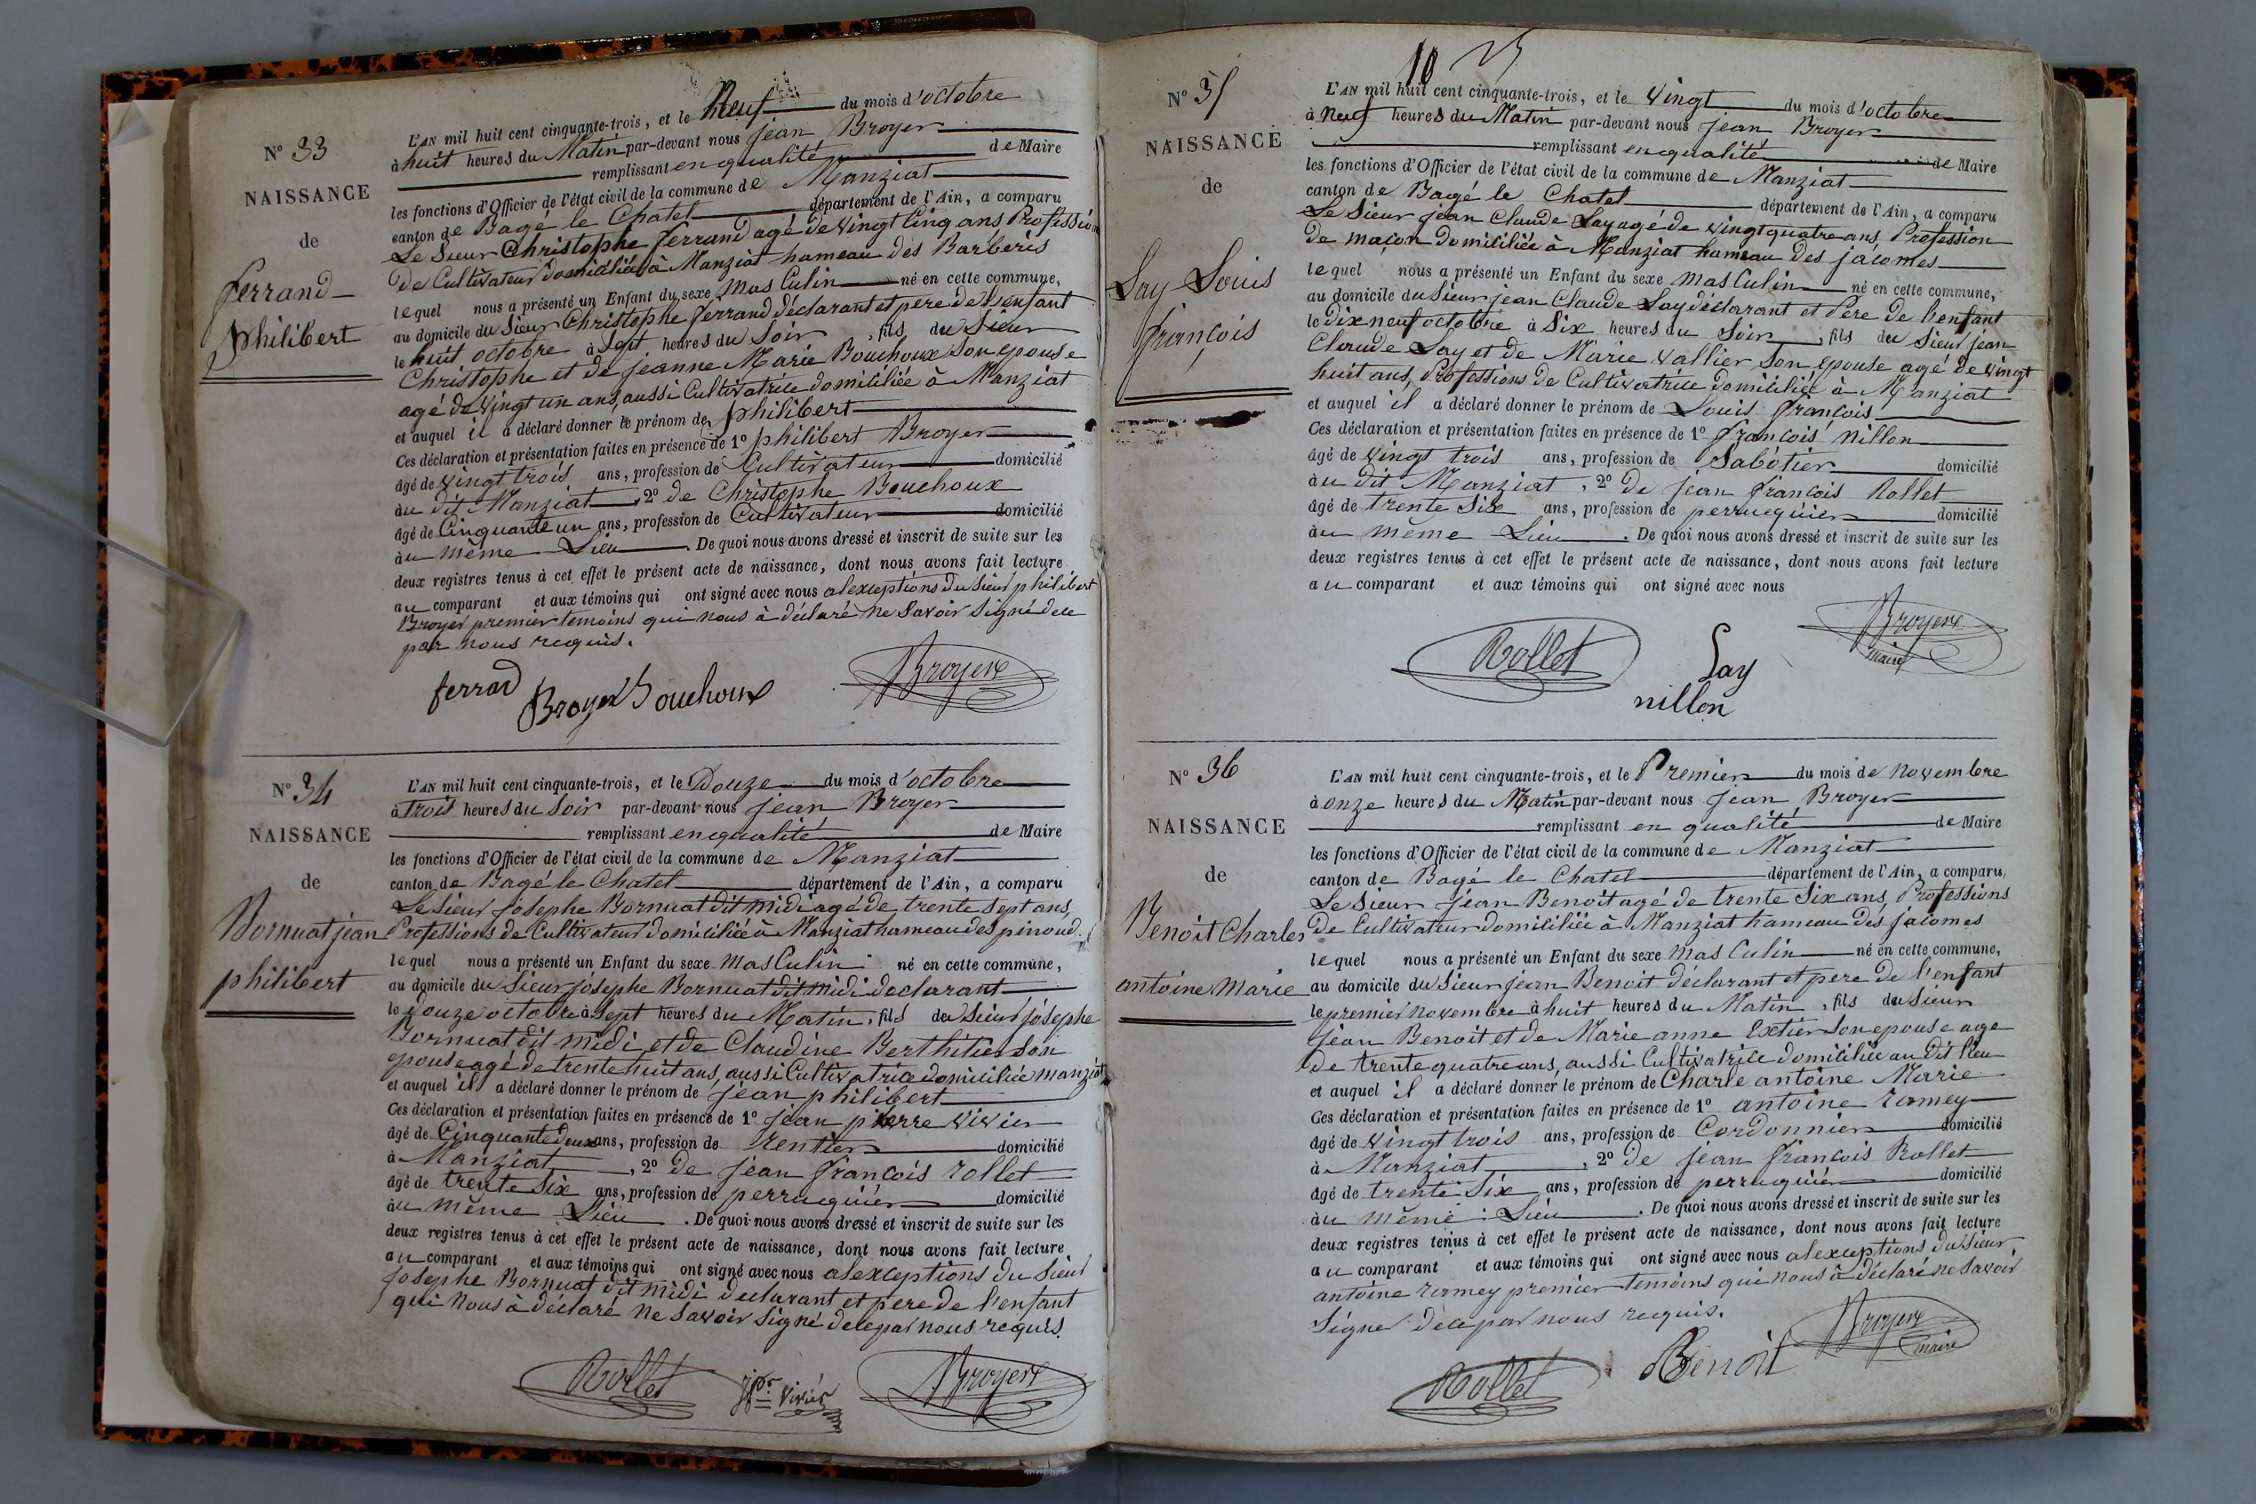 N° 33
NAISSANCE
de
ferrand
philibert
L'AN mil huit cent cinquante-trois, et le Neuf du mois d'octobre
à huit heures du Matin par-devant nous jean Broyer
remplissant en qualité de Maire
les fonctions d'Officier de l'état civil de la commune de Manziat
canton de Bagé le Chatel département de l'Ain, a comparu
Le Sieur Christophe ferrand agé de vingt Cinq ans Profession
de Cultivateur domiciliée à Manziat hameau des Barberis
lequel nous a présenté un Enfant du sexe masCulin né en cette commune,
au domicile du Sieur Christophe ferrand déclarant et pere de l'enfant
le huit octobre à Sept heures du Soir, fils du Sieur
Christophe et de jeanne Marie Bouchoux Son epouse
agé de vingt un ans, aussi Cultivatrice domiciliée à Manziat
et auquel il a déclaré donner le prénom de philibert
Ces déclaration et présentation faites en présence de 1° philibert Broyer
âgé de vingt trois ans, profession de Cultivateur domicilié
àu dit Manziat, 2° de Christophe Bouchoux
âgé de Cinquante un ans, profession de Cultivateur domicilié
àu même Lieu. De quoi nous avons dressé et inscrit de suite sur les
deux registres tenus à cet effet le présent acte de naissance, dont nous avons fait lecture
au comparant et aux témoins qui ont signé avec nous alexceptions du Sieur philibert
Broyer premier temoins qui nous à déclaré ne Savoir Signé dece
par nous requis.
ferrad
Broyer Bouchoux
Broyer
N° 34
NAISSANCE
de
Bornuat jean
philibert
L'AN mil huit cent cinquante-trois, et le Douze du mois d'octobre
à trois heures du Soir par-devant nous jean Broyer
remplissant en qualité de Maire
les fonctions d'Officier de l'état civil de la commune de Manziat
canton de Bagé le Chatel département de l'Ain, a comparu
Le Sieur josephe Bornuat dit midi agé de trente Sept ans,
Professions de Cultivateur domiciliée à Manziat hameau des pinoud
lequel nous a présenté un Enfant du sexe masCulin né en cette commune,
au domicile du Sieur josephe Bornuat dit midi declarant
le Douze octobre à Sept heures du Matin, fils du Sieur jósephe
Bornuat dit midi et de Claudine Berthilier Son
epouse agé de trente huit ans, aussi Cultivatrice domiciliée manziat
et auquel il a déclaré donner le prénom de jean philibert
Ces déclaration et présentation faites en présence de 1° jean pierre vivier
âgé de Cinquante deux ans, profession de rentier domicilié
à Manziat, 2° de jean françois rollet
âgé de trente Six ans, profession de perruquier domicilié
àu même Lieu. De quoi nous avons dressé et inscrit de suite sur les
deux registres tenus à cet effet le présent acte de naissance, dont nous avons fait lecture
au comparant et aux témoins qui ont signé avec nous alexceptions du Sieur
josephe Bornuat dit midi declarant et pere de l'enfant
qui nous à déclaré ne Savoir Signé dece par nous requis.
Rollet
jpre vivier
Broyer
10
N° 35
NAISSANCE
de
Lay Louis
françois
L'AN mil huit cent cinquante-trois, et le vingt du mois d'octobre
à neuf heures du Matin par-devant nous jean Broyer
remplissant en qualité de Maire
les fonctions d'Officier de l'état civil de la commune de Manziat
canton de Bagé le Chatel département de l'Ain, a comparu
Le Sieur jean Claude Lay agé de vingt quatre ans, Profession
de maçon domiciliée à Manziat hameau des jacomes
lequel nous a présenté un Enfant du sexe masCulin né en cette commune,
au domicile du Sieur jean Claude Lay déclarant et Pere de l'enfant
le dix neuf octobre à Six heures du Soir, fils du Sieur jean
Claude Lay et de Marie vallier Son epouse agé de vingt
huit ans, Professions de Cultivatrice domiciliée à Manziat
et auquel il a déclaré donner le prénom de Louis françois
Ces déclaration et présentation faites en présence de 1° françois nillon
âgé de vingt trois ans, profession de Sabotier domicilié
àu dit Manziat, 2° de jean françois Rollet
âgé de trente Six ans, profession de perruquier domicilié
àu même Lieu. De quoi nous avons dressé et inscrit de suite sur les
deux registres tenus à cet effet le présent acte de naissance, dont nous avons fait lecture
au comparant et aux témoins qui ont signé avec nous
Rollet
Lay
nillon
Broyer
maire
N° 36
NAISSANCE
de
Benoit Charles
antoine marie
L'AN mil huit cent cinquante-trois, et le Premier du mois de novembre
à onze heures du Matin par-devant nous jean Broyer
remplissant en qualité de Maire
les fonctions d'Officier de l'état civil de la commune de Manziat
canton de Bagé le Chatel département de l'Ain, a comparu
Le Sieur jean Benoit agé de trente Six ans, Professions
de Cultivateur domiciliée à Manziat hameau des jacomes
lequel nous a présenté un Enfant du sexe masCulin né en cette commune,
au domicile du Sieur jean Benoit déclarant et pere de l'enfant
le premier novembre à huit heures du Matin, fils du Sieur
jean Benoit et de Marie anne Extier Son epouse age
de trente quatre ans, aussi Cultivatrice domiciliée au dit lieu
et auquel il a déclaré donner le prénom de Charle antoine Marie
Ces déclaration et présentation faites en présence de 1° antoine ramey
âgé de vingt trois ans, profession de Cordonnier domicilié
à Manziat, 2° de jean françois Rollet
âgé de trente Six ans, profession de perruquier domicilié
àu même Lieu. De quoi nous avons dressé et inscrit de suite sur les
deux registres tenus à cet effet le présent acte de naissance, dont nous avons fait lecture
au comparant et aux témoins qui ont signé avec nous alexceptions du Sieur
antoine ramey premier temoins qui nous à déclaré ne Savoir
Signer dece par nous requis.
Rollet
Benoit
Broyer
maire